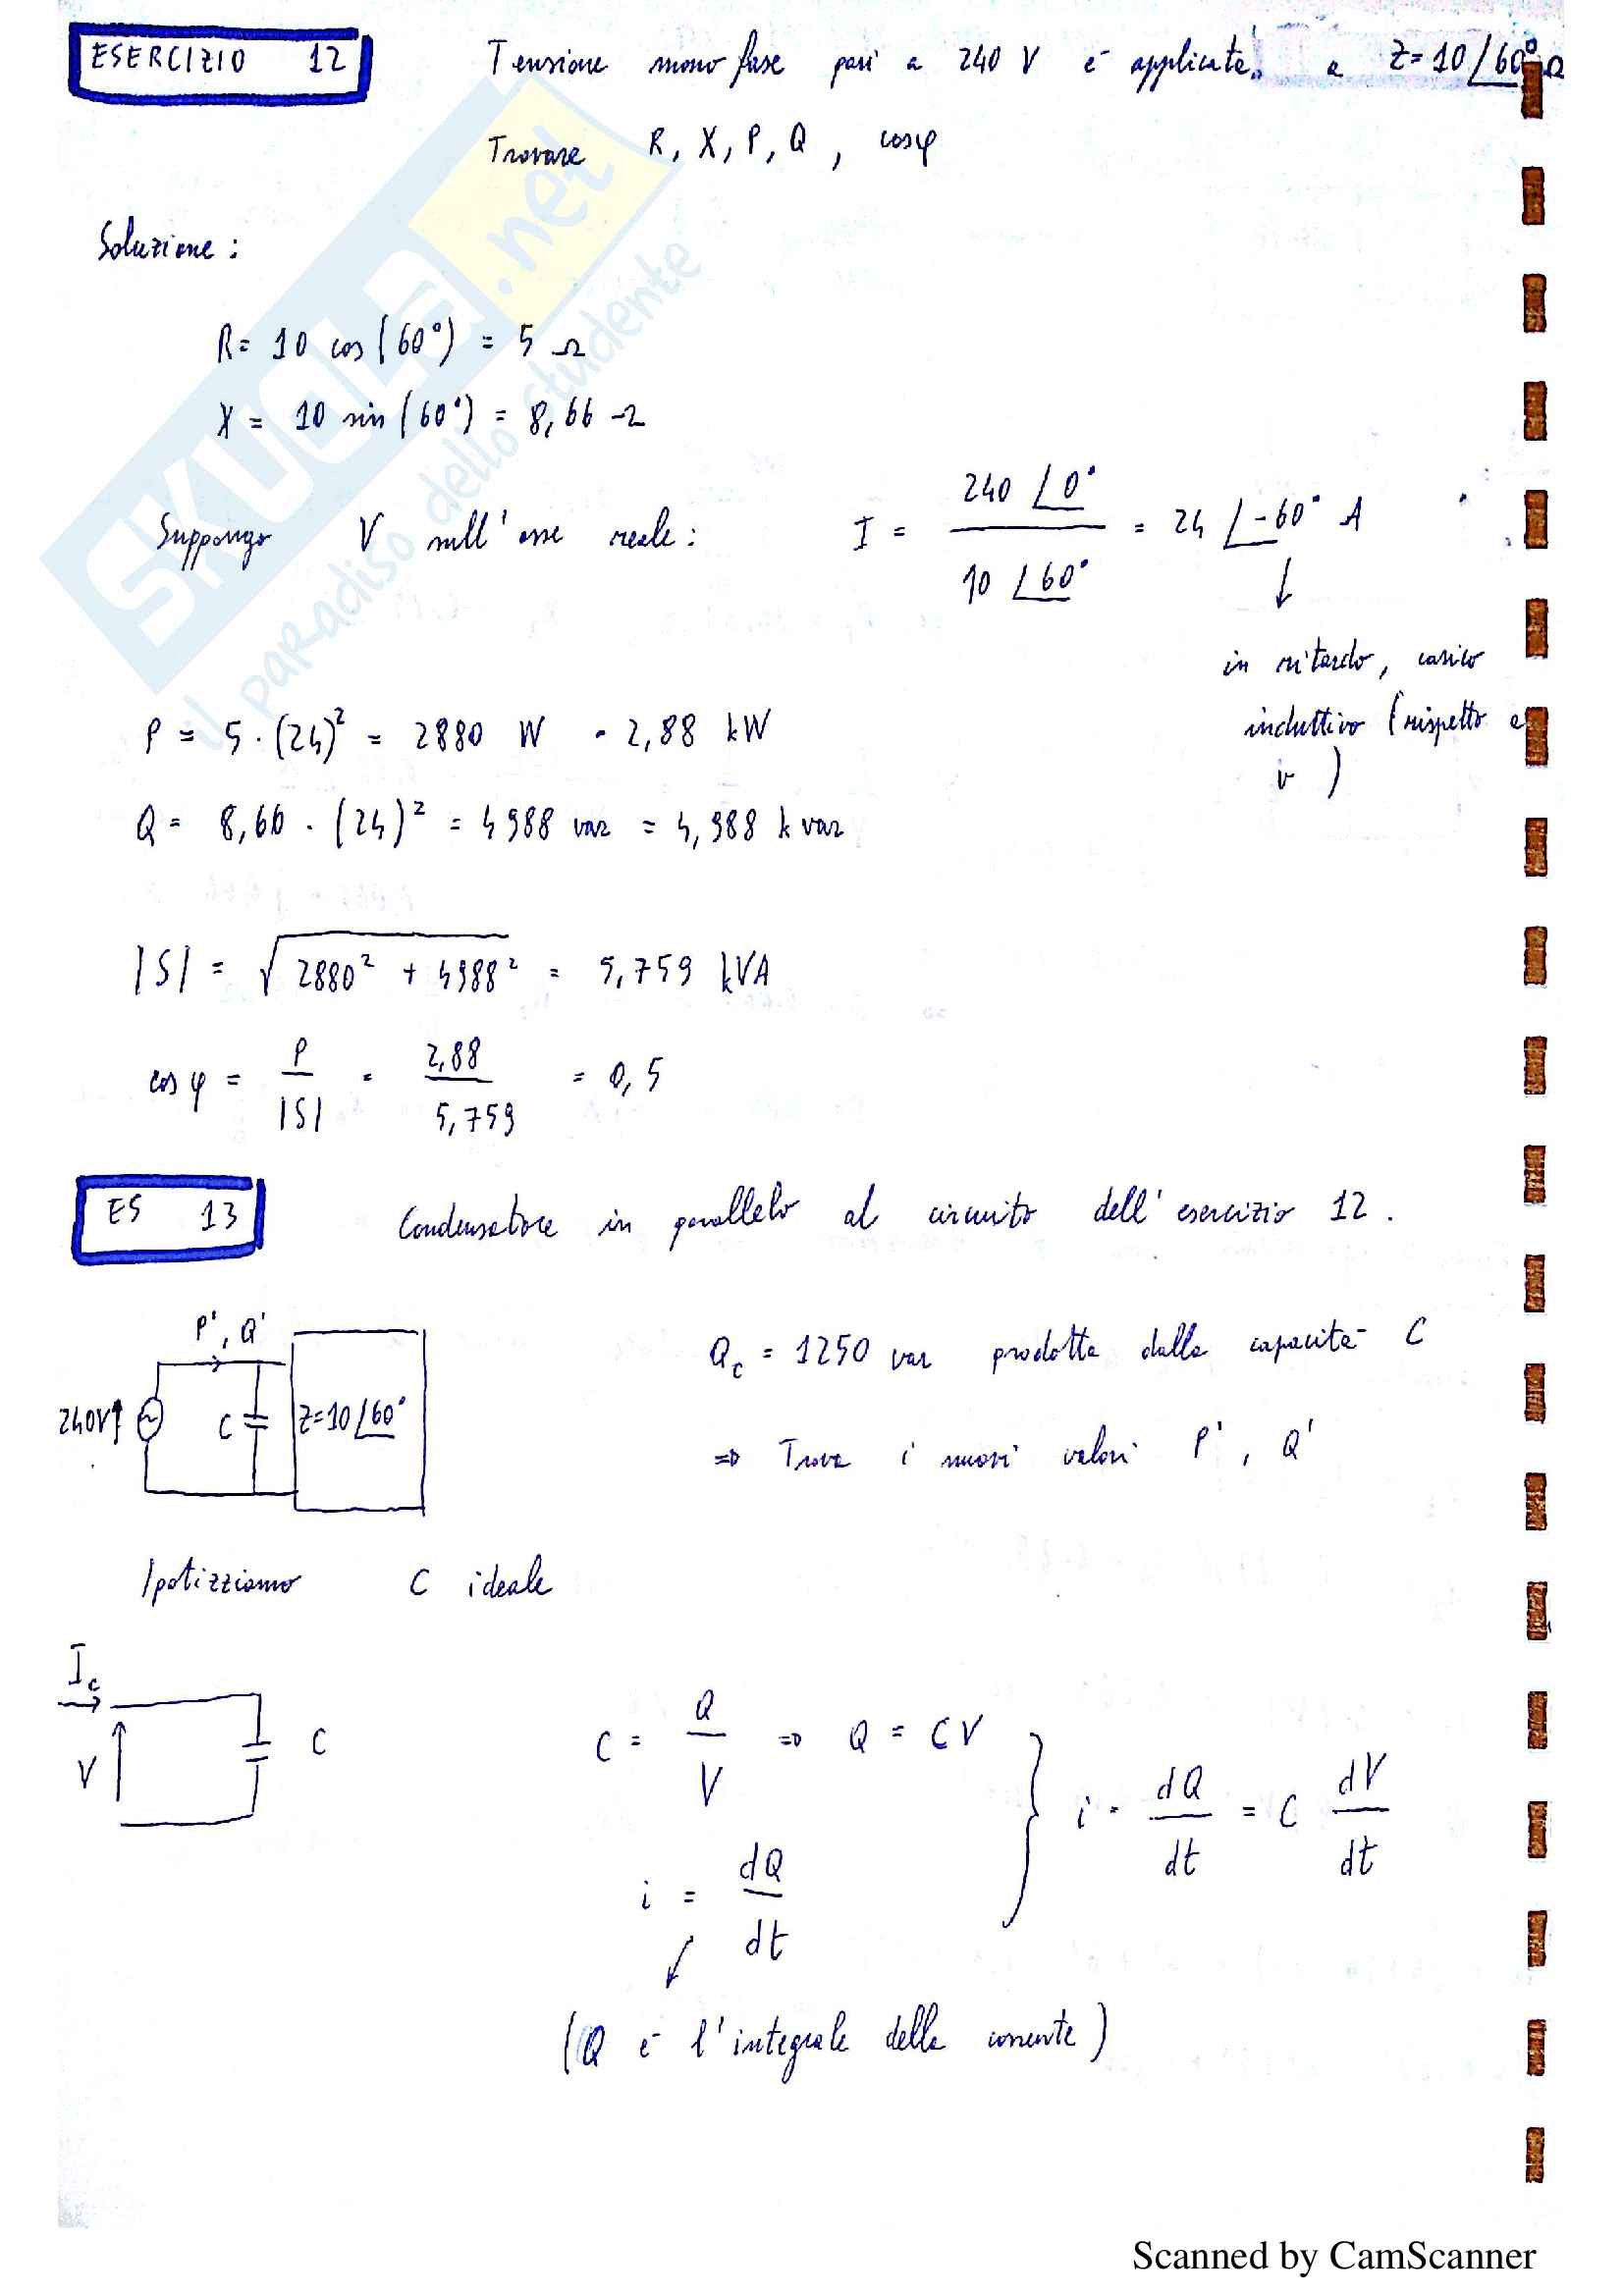 ESERCIZIO 12 Tensione monofase pari a 240 V è applicata a Z=10∠60° Ω
Trovare R, X, P, Q, cosφ
Soluzione:
R= 10 cos(60°) = 5 Ω
X = 10 sin(60°) = 8,66 Ω
Suppongo V sull'asse reale: I = 240 ∠0° / 10 ∠60° = 24 ∠-60° A
in ritardo, carico
induttivo (rispetto a
V)
P = 5 · (24)² = 2880 W = 2,88 kW
Q = 8,66 · (24)² = 4988 var = 4,988 kvar
|S| = √2880² + 4988² = 5,759 kVA
cos φ = P / |S| = 2,88 / 5,759 = 0,5
ES 13 Condensatore in parallelo al circuito dell'esercizio 12.
P', Q'
240V C Z=10∠60°
Qc = 1250 var prodotta dalla capacità C
⇒ Trova i nuovi valori P', Q'
Ipotizziamo C ideale
Ic
V C
C = Q / V ⇒ Q = CV
i = dQ / dt
i = dQ / dt = C dV / dt
(Q è l'integrale della corrente)
SKUOLA.net
il paradiso dello studente
Scanned by CamScanner